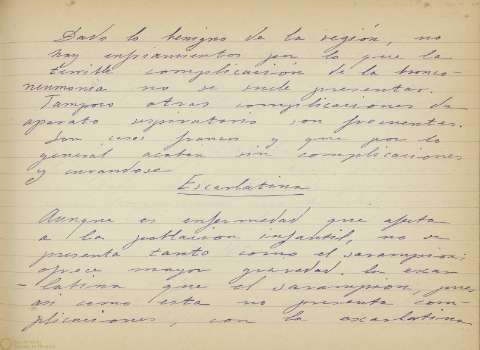 Dado lo benigno de la región, no
hay enfriamientos por lo que la
terrible complicación de la bronco-
neumonía no se suele presentar.
Tampoco otras complicaciones de
aparato respiratorio son frecuentes.
Son casos francos y que por lo
general acaban sin complicaciones
y curandose
Escarlatina
Aunque es enfermedad que afecta
a la poblacion infantil, no se
presenta tanto como el sarampion;
ofrece mayor gravedad la escar-
latina que el sarampion, pues
asi como esta no presenta com-
plicaciones, con la escarlatina